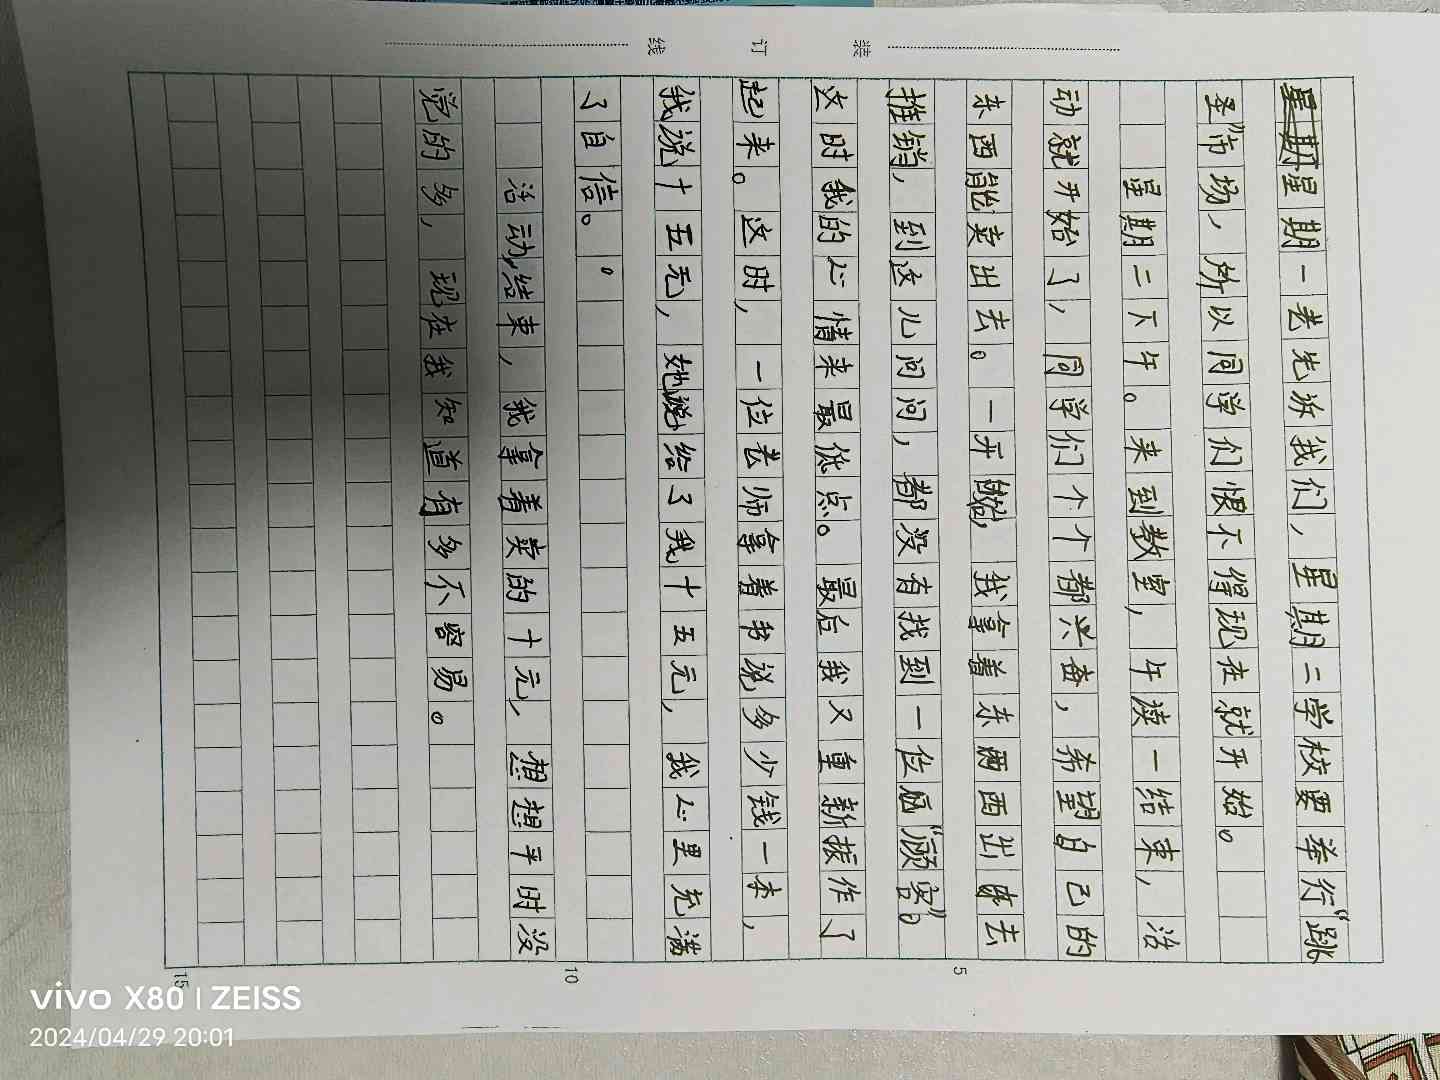 装 订 线
星期一老先诉我们，星期二学校要举行“跳
圣”市场，所以同学们恨不得现在就开始。
星期二下午。来到教室，午读一结束，活
动就开始了，同学们个个都兴奋，希望自己的
东西能卖出去。一开始，我拿着东西出去
推销，到这儿问问，都没有找到一位“顾客”。
5
这时我的心情来最低点。最后我又重新振作了
起来。这时，一位老师拿着书说多少钱一本，
我说十五元，她给了我十五元，我心里充满
了自信。
活动结束，我拿着卖的十元，想想平时没
10
觉的多，现在我知道有多不容易。
15
vivo X80 | ZEISS
2024/04/29 20:01